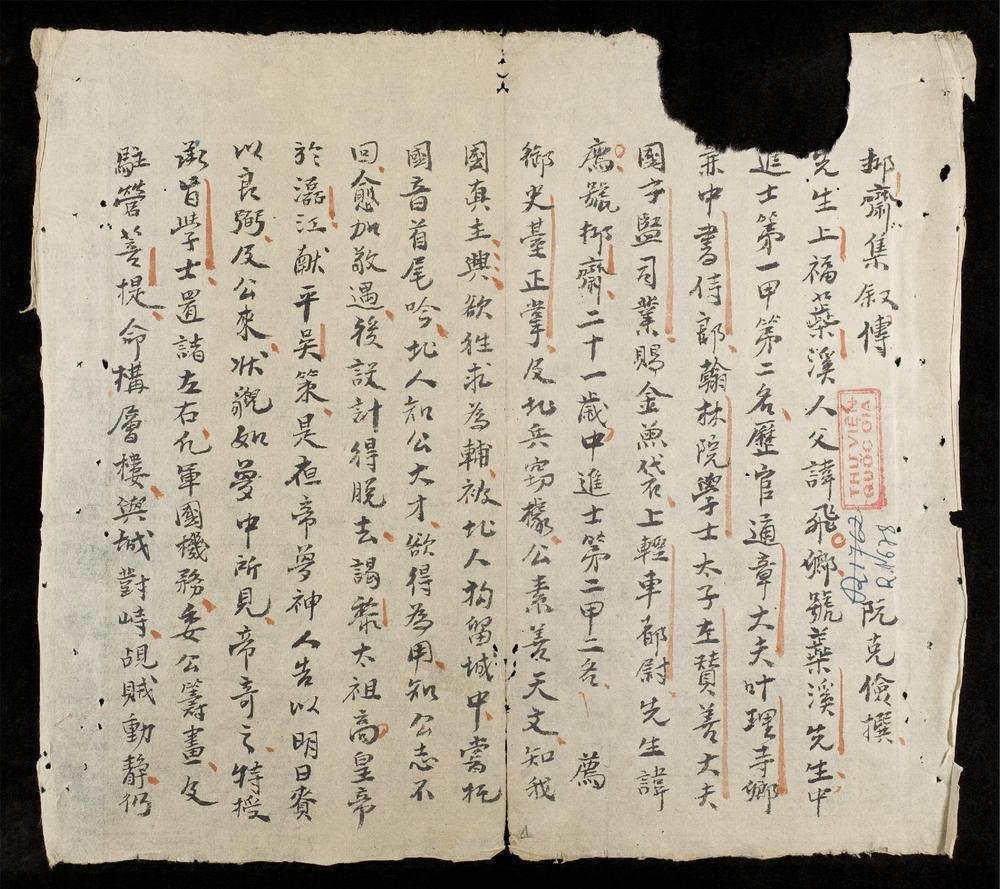 抑齋集叙傳
阮克儉撰
先生上福蘂溪人父諱飛卿號蘂溪先生中
進士第一甲第二名歷官通章大夫叶理寺卿
兼中書侍郎翰林院學士太子左贊善大夫
國子監司業賜金魚袋上輕車都尉先生諱
廌號抑齋二十一歲中進士第二甲二名 薦
御史臺正掌及北兵窃據公素善天文知我
國真主興欲徃求為輔被北人拘留城中嘗扺
國音首尾吟北人知公大才欲得為用知公志不
回愈加敬遇後設計得脫去謁黎太祖高皇帝
於㵢江献平吳策是夜帝夢神人告以明日賚
以良弼及公來狀貌如夢中所見帝奇之特授
承旨學士置諸左右凢軍國機務委公籌畫及
駐營菩提命構層樓與城對峙覘賊動静仍
THƯ VIỆN
QUỐC GIA
R.1762
R.N678